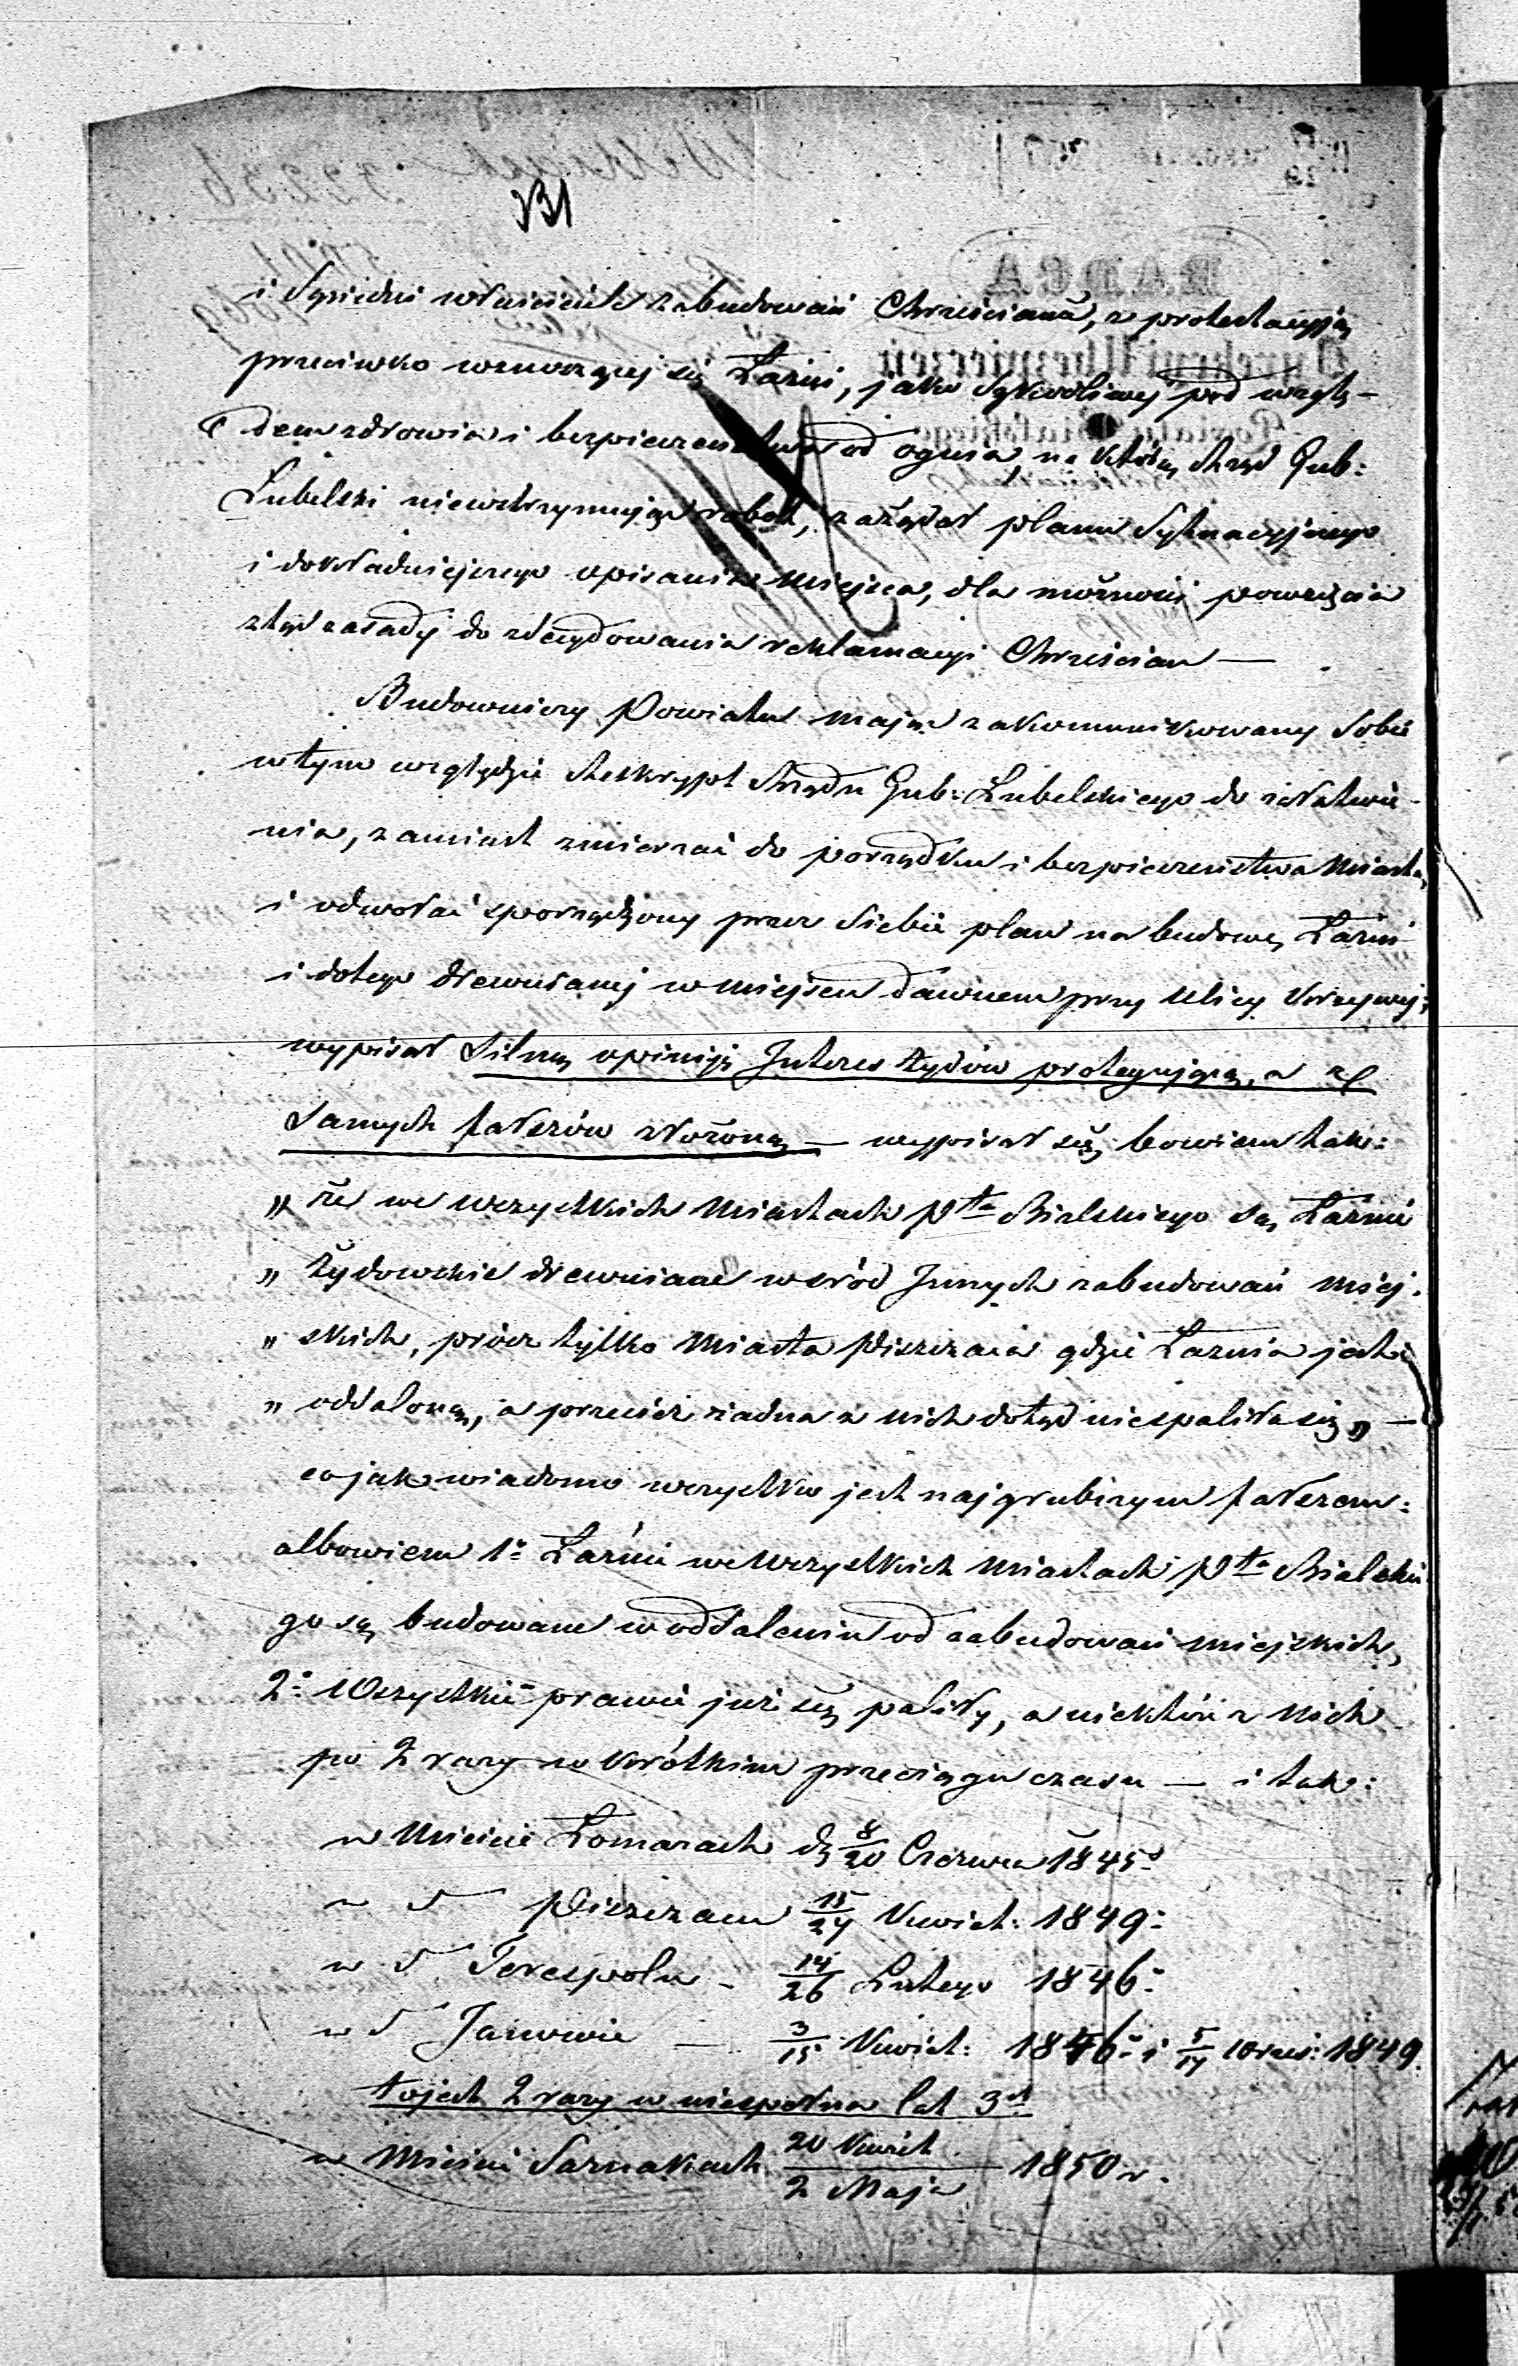 131
i Sąsiedni właściciele zabudowań Chrześcianie, z protestacyją
przeciwko wznoszącej się Łaźni, jako szkodliwej pod wzglę-
dem zdrowia i bezpieczeństwa od ognia na którą Rząd Gub:
Lubelski niewstrzymując robot, zażądał planu Sytuacyjnego
i dokładniejszego opisania Miejsca, dla możności powzięcia
ztąd zasady do zdecydowania reklamacyi Chrześcian —
Budowniczy Powiatu mając zakomunikowany Sobie
w tym względzie Reskrypt Rządu Gub: Lubelskiego do załatwie-
nia, zamiast zmierzać do porządku i bezpieczeństwa Miasta,
i odwołać sporządzony przez Siebie plan na budowę Łaźni
i do tego drewnianej w miejscu dawnem przy Ulicy Krzywej;
wypisał Silną opiniję Interes Żydów protegującą, a z
Samych fałszów złożoną — wypisał się bowiem tak:
„ że we wszystkich Miastach Ptu Bialskiego są Łaźnie
„ Żydowskie drewniane wśród Innych zabudowań Miej-
„ skich, prócz tylko Miasta Piszczaca gdzie Łaznia jest
„ oddaloną, a przecież żadna z nich dotąd niespaliła się „ —
co jak wiadomo wszystko jest najgrubszym fałszem:
albowiem 1o Łaźnie we Wszystkich Miastach Ptu Bialskie
go są budowane w oddaleniu od zabudowań Miejskich,
2o Wszystkie prawie już się paliły, a niektóre z Nich
po 2 razy w krótkim przeciągu czasu — i tak:
w Mieście Łomazach d 8/20 Czerwca 1845
w d Piszczacu 15/27 Kwiet: 1849
w d Terespolu – 14/26 Lutego 1846
w d Janowie — 3/15 Kwiet: 1846 i 5/17 Wrześ: 1849
to jest 2 razy w niespełna lat 3ch
w Mieście Sarnakach 20 Kwiet / 2 Maja 1850 r.